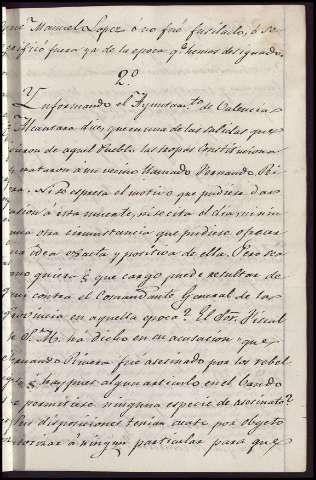 que? Manuel Lopez ó no fué fusilado, ó se
verificó fuera ya de la epoca q.e hemos designado.
2.º
Informando el Ayuntam.to de Valencia
de Alcantara dice, que en una de las salidas que
hicieron de aquel Pueblo las tropas Constituciona
les, mataron á un vecino llamado Fernando Ri
bera. Ni se espresa el motivo que pudiese dar o
casion á esta muerte, ni se cita el dia ni nin
guna otra circunstancia que pudiese ofrecer
una idea exacta y positiva de ella. Pero sea
como quiera ¿ que cargo puede resultar de
aqui contra el Comandante General de la
Provincia en aquella epoca? El Sor. Fiscal
de S. M. há dicho en su acusacion: que
Fernando Rivera fué asesinado por los rebel
des ¿ hay pues algun articulo en el Bando
que permitiese ninguna especie de asesinato?
disposiciones tenian por objeto
autorizar á ningun particular para que